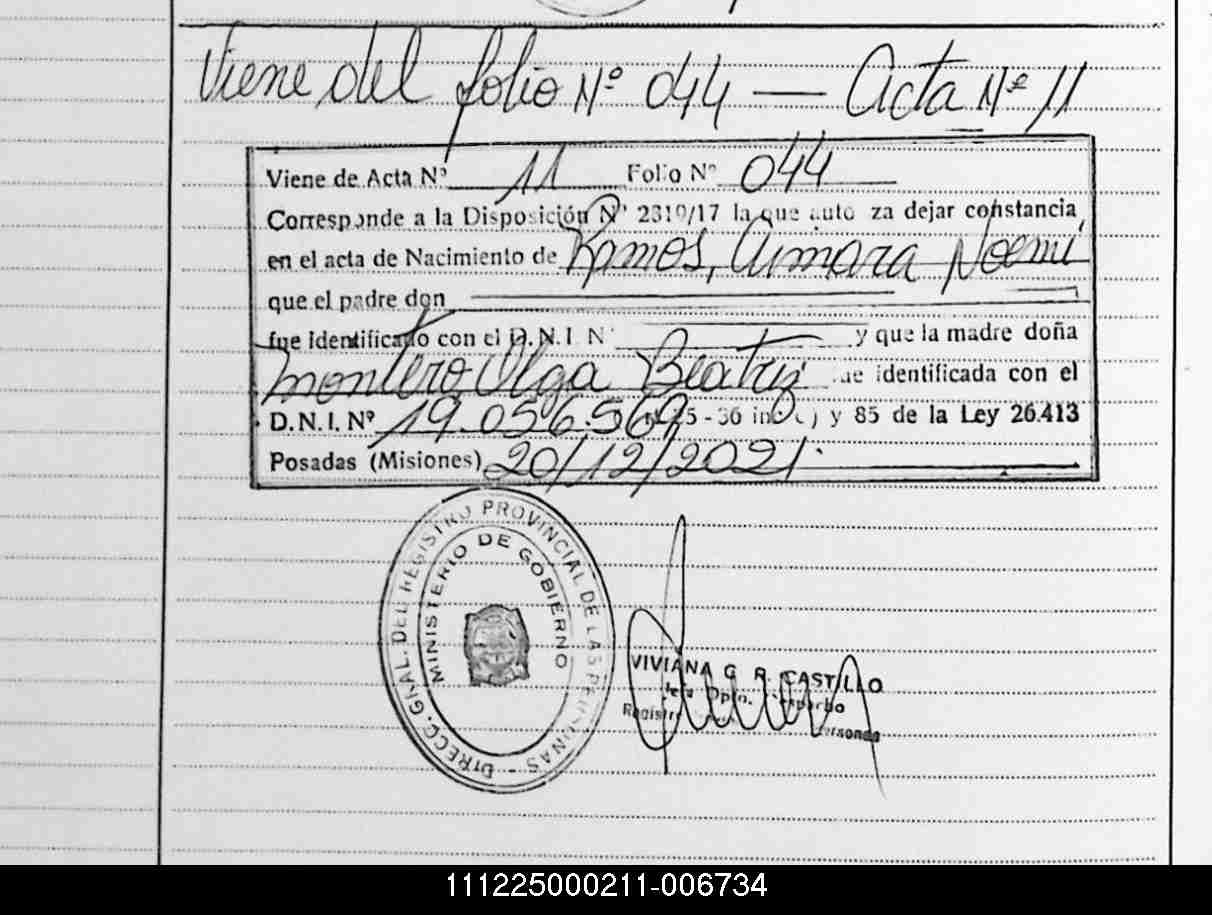 Viene del folio Nº 044 — Acta Nº 11
Viene de Acta Nº 11 Folio Nº 044
Corresponde a la Disposición Nº 2310/17 la que auto za dejar constancia
en el acta de Nacimiento de Ramos, Aimara Noemi
que el padre don
fue identificado con el D.N.I. Nº y que la madre doña
Montero, Olga Beatriz ue identificada con el
D.N.I. Nº 19.056.569 5 - 36 in y 85 de la Ley 26.413
Posadas (Misiones) 20/12/2021.
DIRECC. GRAL. DEL REGISTRO PROVINCIAL DE LAS PERSONAS
MINISTERIO DE GOBIERNO
VIVIANA G. R. CASTILLO
Jefa Dpto.
Registr ersonas
111225000211-006734